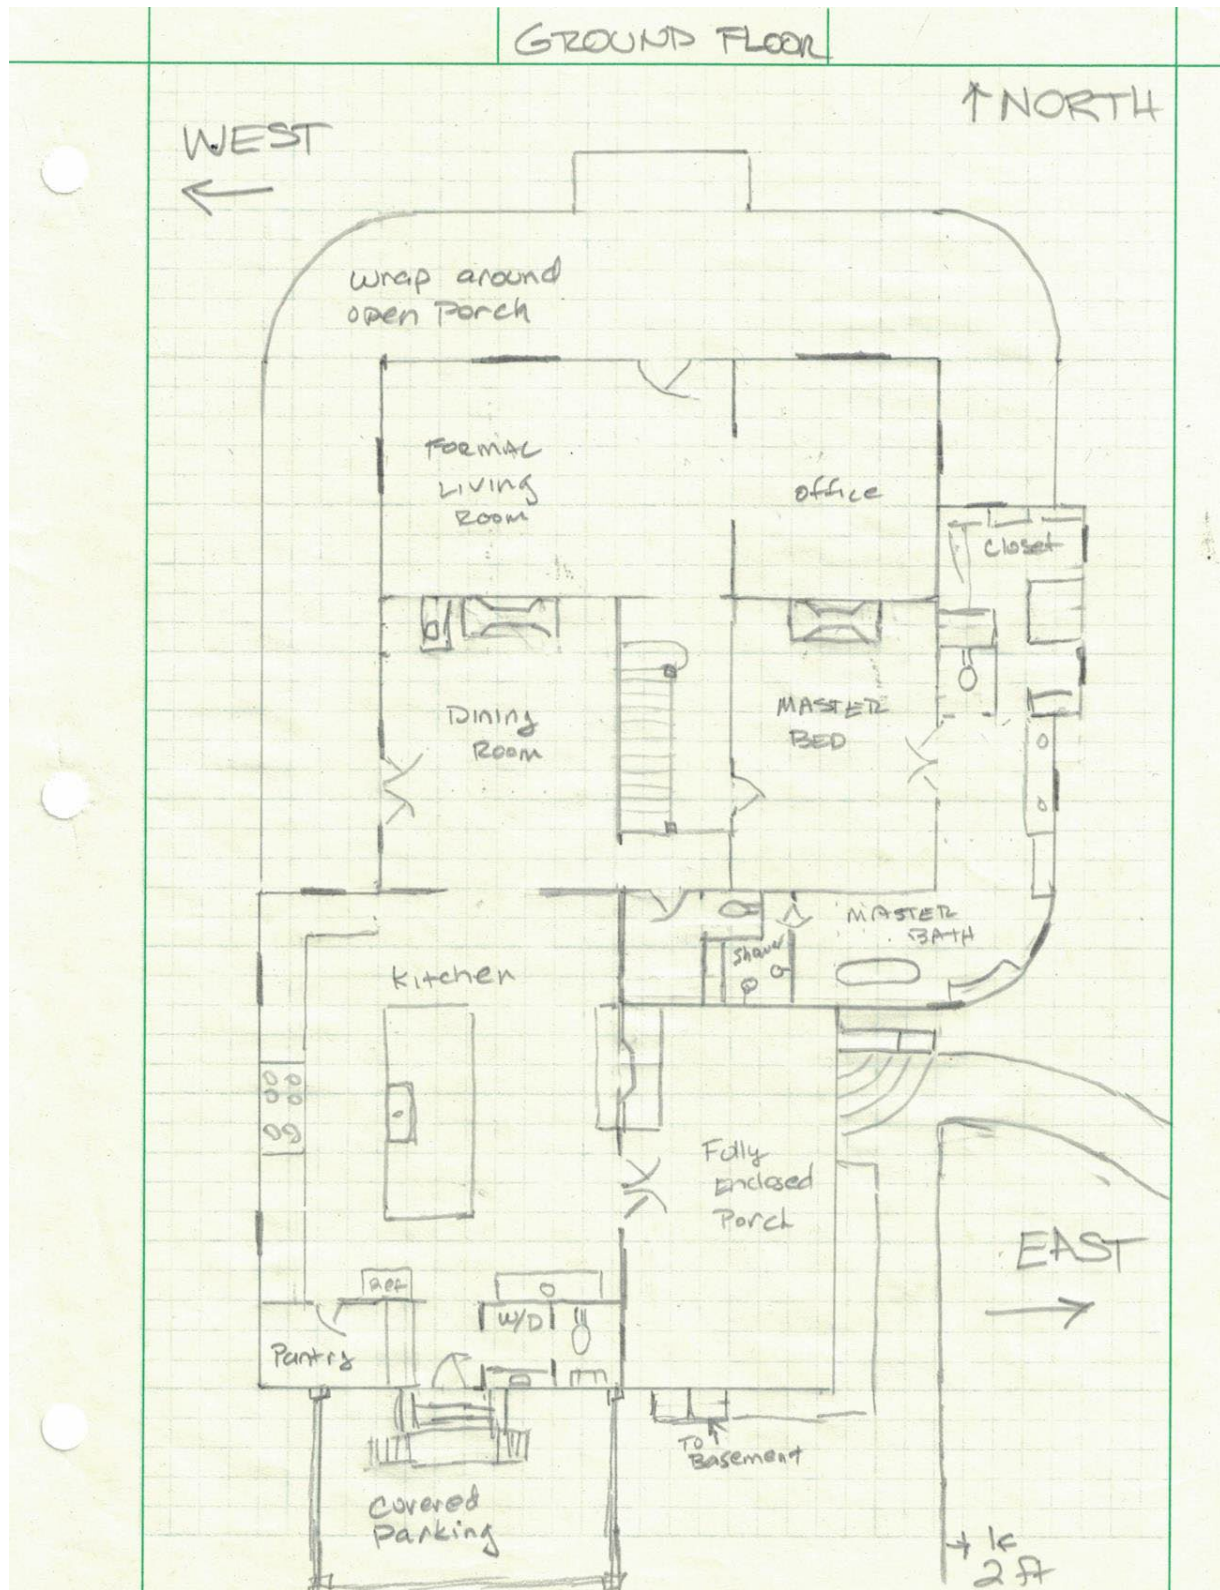 GROUND FLOOR
↑ NORTH
WEST
←
wrap around
open Porch
FORMAL
LIVING
ROOM
office
closet
DINING
ROOM
MASTER
BED
MASTER
BATH
Shower
Kitchen
Fully
Enclosed
Porch
EAST
→
REF
W/D
Pantry
To
Basement
Covered
Parking
2 ft